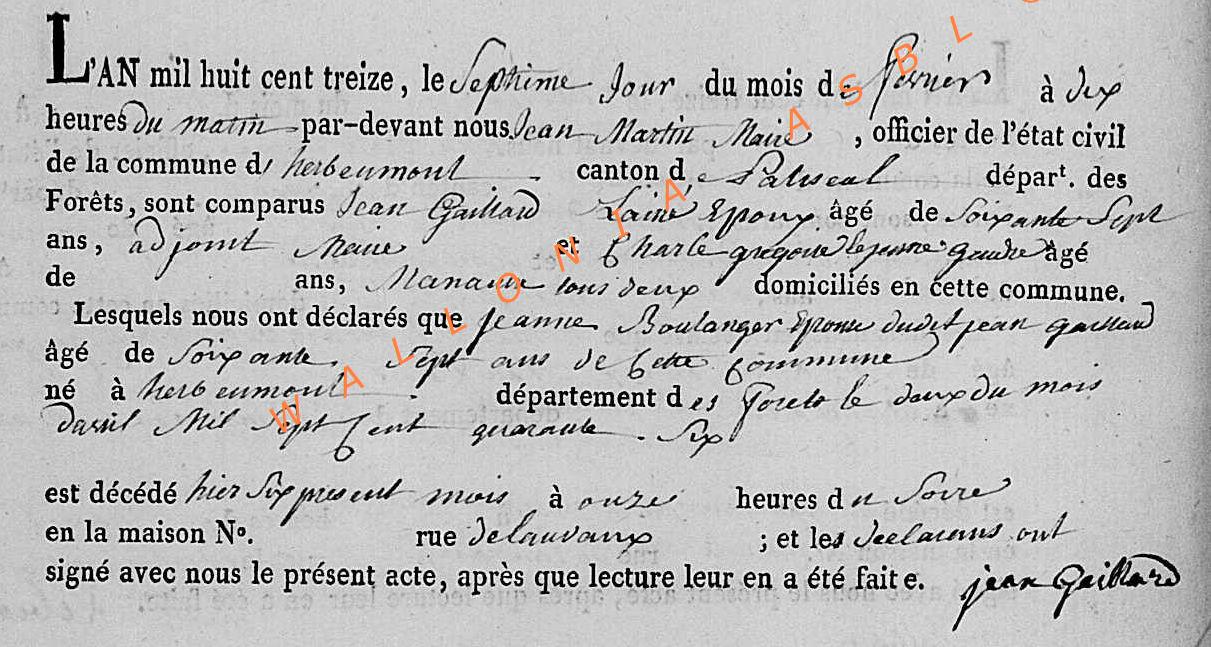 L'AN mil huit cent treize, le Septième Jour du mois de fevrier à dix
heures du matin par-devant nous Jean Martin Maire, officier de l'état civil
de la commune d herbeumont canton de Paliseul départ. des
Forêts, sont comparus Jean Gaillard Lainé Epoux âgé de Soixante Sept
ans, adjoint Maire et Charle gregoire lejeune gendre âgé
de ans, Manauvre tous deux domiciliés en cette commune.
Lesquels nous ont déclarés que jeanne Boulanger Epouse dudit jean gaillard
âgé de Soixante Sept ans de Cette Commune
né à herbeumont département des Forets le deux du mois
davril Mil Sept Cent quarante Six
est décédé hier Six present mois à onze heures du Soire
en la maison No. rue delauvaux ; et les declarans ont
signé avec nous le présent acte, après que lecture leur en a été faite. jean Gaillard
WALLONIA ASBL